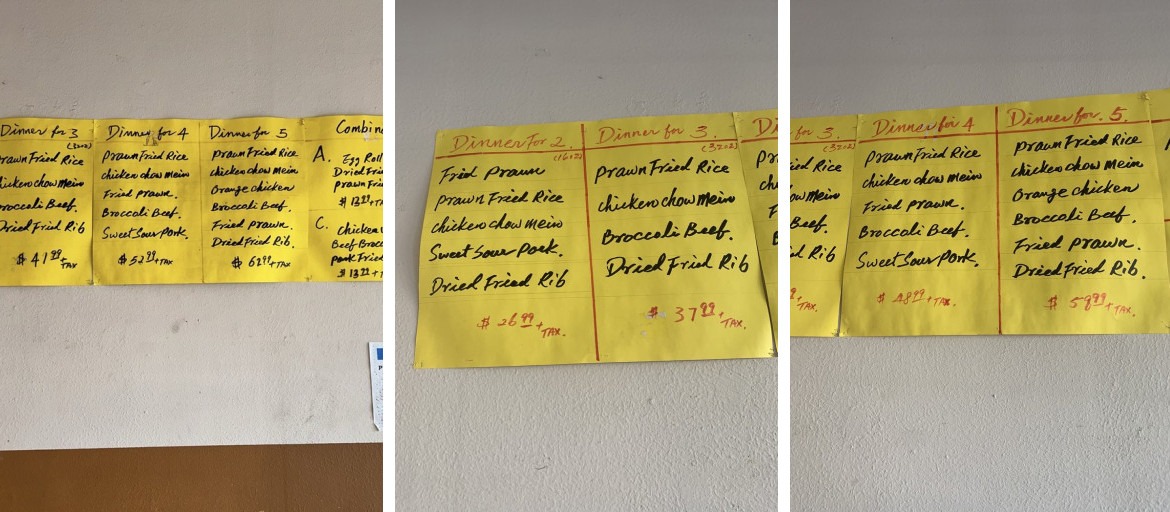 Dinner for 3
(3202)
Prawn Fried Rice
chicken chow mein
Broccoli Beef.
Dried Fried Rib
$ 41.99+TAX
Dinner for 4
Prawn Fried Rice
chicken chow mein
Fried prawn.
Broccoli Beef.
Sweet Sour Pork.
$ 52.99+TAX
Dinner for 5
Prawn Fried Rice
chicken chow mein
Orange chicken
Broccoli Beef.
Fried prawn.
Dried Fried Rib.
$ 62.99+TAX
Combin
A. Egg Roll
Dried Fri
prawn Fri
$ 13.99+T
C. Chicken
Beef Broc
pork Fried
$ 13.99+T
Dinner For 2.
(1602)
Fried Prawn
prawn Fried Rice
chicken chow mein
Sweet Sour Pork.
Dried Fried Rib
$ 26.99+TAX.
Dinner for 3.
(3202)
prawn Fried Rice
chicken chow mein
Broccoli Beef.
Dried Fried Rib
$ 37.99+TAX.
Di
pr
ch
F
B
for 3.
(3202)
ied Rice
ow Mein
Beef.
ied Rib
+TAX.
Dinner for 4
Prawn Fried Rice
chicken chow mein
Fried prawn.
Broccoli Beef.
Sweet Sour Pork.
$ 48.99+TAX.
Dinner for. 5.
prawn Fried Rice
chicken chow mein
Orange chicken
Broccoli Beef.
Fried prawn.
Dried Fried Rib.
$ 59.99+TAX.